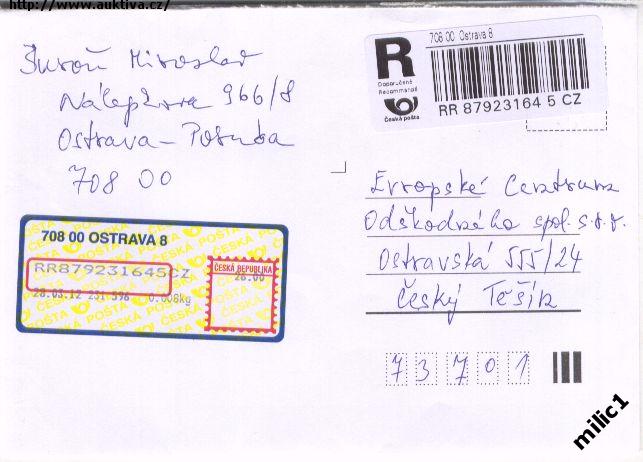 http://www.auktiva.cz/
Miroslav
Nálepkova 966/8
Ostrava-Poruba
708 00
R
Doporučeně
Recommandé
Česká pošta
708 00 Ostrava 8
RR 87923164 5 CZ
Evropské Centrum
Odškodného spol. s.r.o.
Ostravská 555/24
Český Těšín
73701
708 00 OSTRAVA 8
RR879231645CZ
ČESKÁ REPUBLIKA
26.00
28.03.12 231-596 0.008kg
ČESKÁ POŠTA
milic1